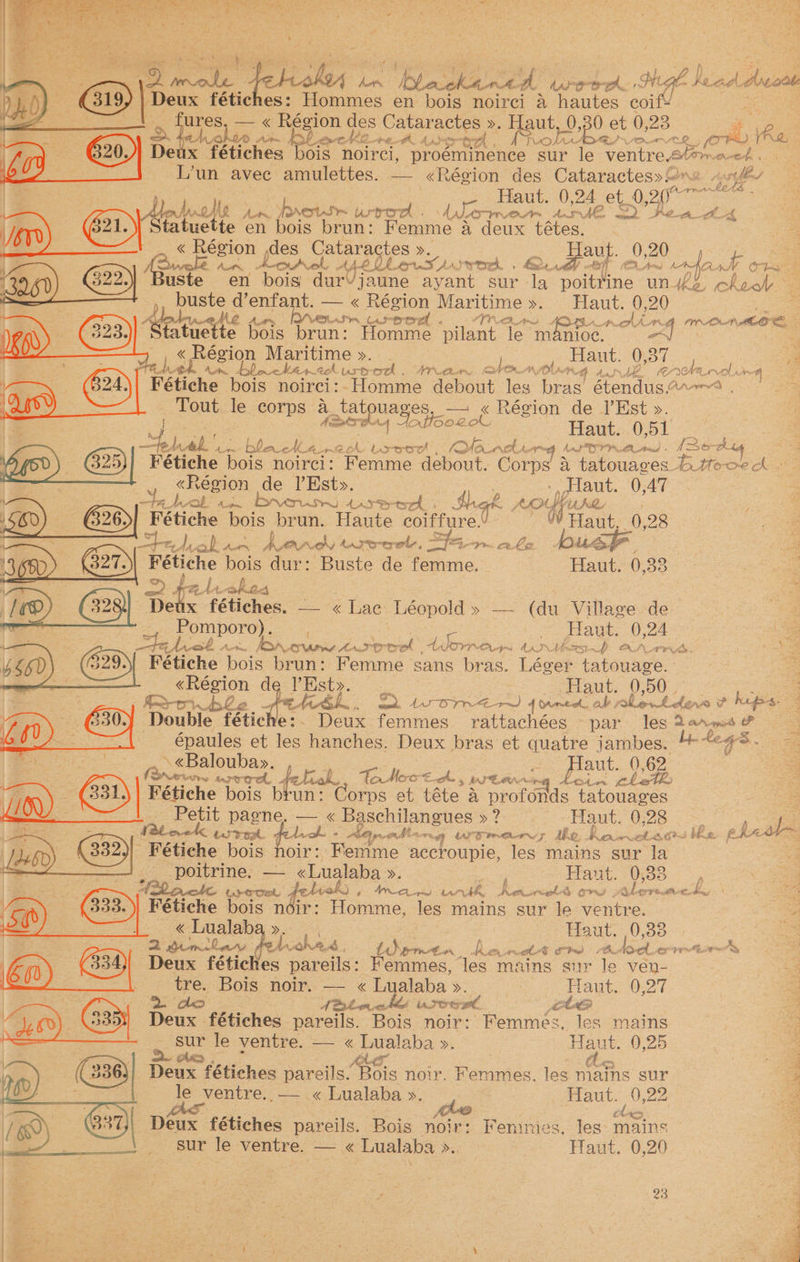 2 male fetishes in blackened wood. High head dress
319) Deux fétiches: Hommes en bois noirci à hautes coif-
fures. — « Région des Cataractes ». Haut. 0,30 et 0,23
320.) Deux fétiches bois noirci, proéminence sur le ventre.
L'un avec amulettes. — «Région des Cataractes»
Haut. 0,24 et 0,20
Statuette in brown wood. Woman with 2 heads
321.) Statuette en bois brun: Femme à deux têtes.
« Région des Cataractes ». Haut. 0,20
322.) Buste en bois dur jaune ayant sur la poitrine un
buste d'enfant. — « Région Maritime ». Haut. 0,20
323.) Statuette bois brun: Homme pilant le manioc.
« Région Maritime ». Haut. 0,37
Fetish in blackened wood. Man standing with
324.) Fétiche bois noirci: Homme debout les bras étendus.
Tout le corps à tatouages. — « Région de l'Est ».
Haut. 0,51
Fetish in blackened wood. Standing woman. Body tattooed
325) Fétiche bois noirci: Femme debout. Corps à tatouages
«Région de l'Est». Haut. 0,47
Fetish in brown wood. High coiffure
326.) Fétiche bois brun. Haute coiffure. Haut. 0,28
Fetish in hard wood. Female bust
327.) Fétiche bois dur: Buste de femme. Haut. 0,33
2 fetishes
328) Deux fétiches. — « Lac Léopold » — (du Village de
Pomporo). Haut. 0,24
Fetish in brown wood. Woman without arms.
329.) Fétiche bois brun: Femme sans bras. Léger tatouage.
«Région de l'Est». Haut. 0,50
Double fetish. 2 women joined at shoulders & hips.
330.) Double fétiche: Deux femmes rattachées par les 2 arms &
épaules et les hanches. Deux bras et quatre jambes. 4 legs.
«Balouba». Haut. 0,62
Brown wood fetish. Tattooed, wearing loin cloth
331.) Fétiche bois brun: Corps et tête à profonds tatouages
Petit pagne. — « Baschilangues » ? Haut. 0,28
Black wood fetish - squatting woman, the hands on the chest
332) Fétiche bois noir: Femme accroupie, les mains sur la
poitrine. — «Lualaba ». Haut. 0,33
Black wood fetish, man with hands on stomach
333.) Fétiche bois noir: Homme, les mains sur le ventre.
« Lualaba ». Haut. 0,33
2 similar fetishes. Women hands on
334) Deux fétiches pareils: Femmes, les mains sur le ven-
tre. Bois noir. — « Lualaba ». Haut. 0,27
2 do Black wood do
335) Deux fétiches pareils. Bois noir: Femmes, les mains
sur le ventre. — « Lualaba ». Haut. 0,25
2 do do do
(336) Deux fétiches pareils. Bois noir. Femmes, les mains sur
le ventre. — « Lualaba ». Haut. 0,22
do do do
337) Deux fétiches pareils. Bois noir: Femmes, les mains
sur le ventre. — « Lualaba ». Haut. 0,20
23